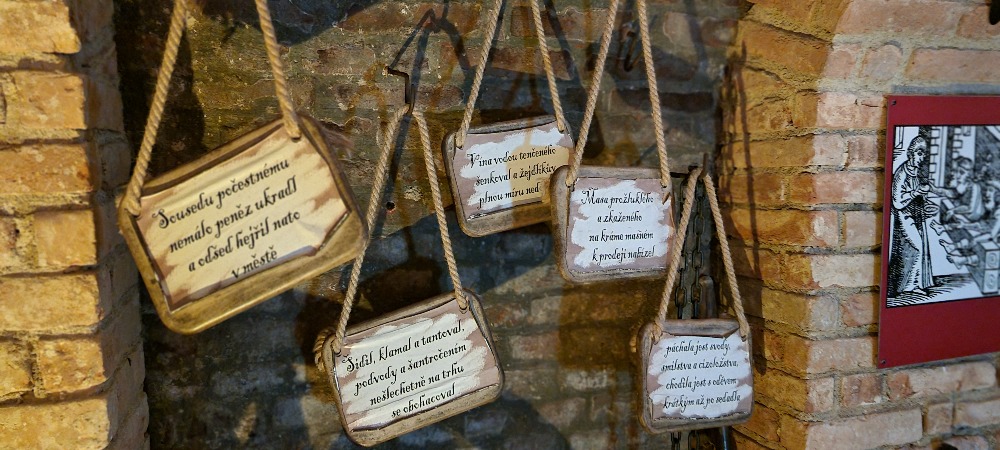 Sousedu počestnému
nemálo peněz ukradl
a odšed hejřil nato
v městě
Šidil, klamal a tantoval,
podvody a šantročením
nešlechetně na trhu
se obohacoval
Vína vodou tenčeného
šenkoval a žejdlíkův
plnou míru ned
Masa prožluklého
a zkaženého
na krámě masném
k prodeji nabízel
páchala jest svody,
smilstva a cizoložstva,
chodila jest s oděvem
krátkým až po sedadla